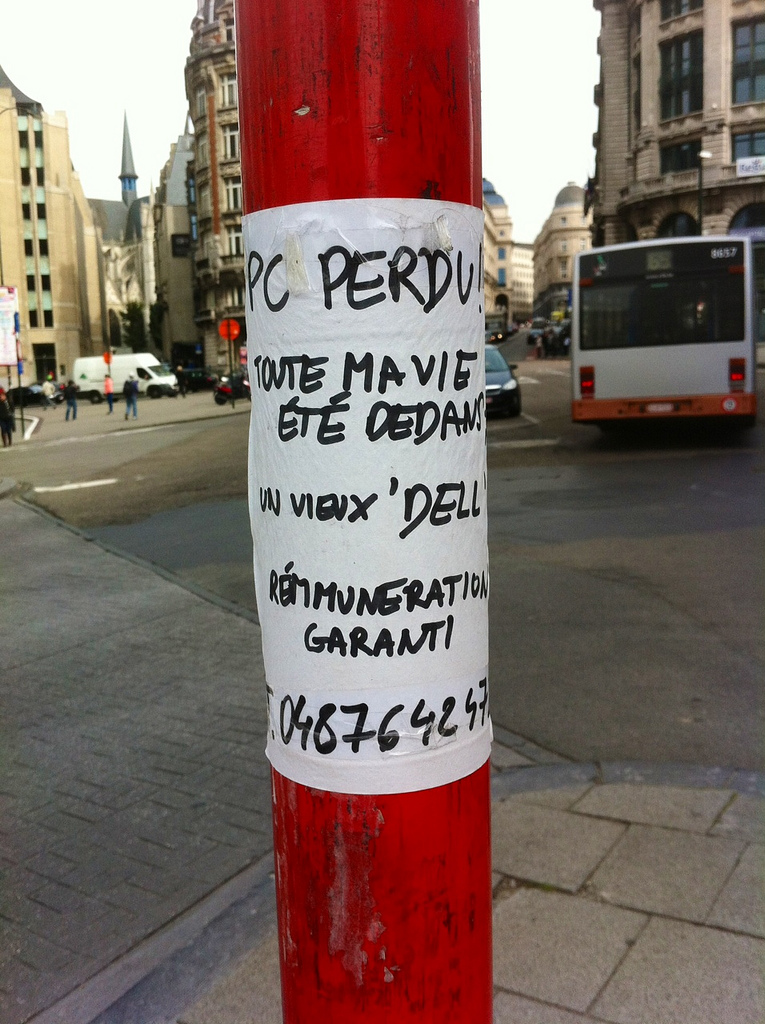 PC PERDU!
TOUTE MA VIE
ÉTÉ DEDANS
UN VIEUX 'DELL'
RÉMMUNERATION
GARANTI
T. 048764247
8657